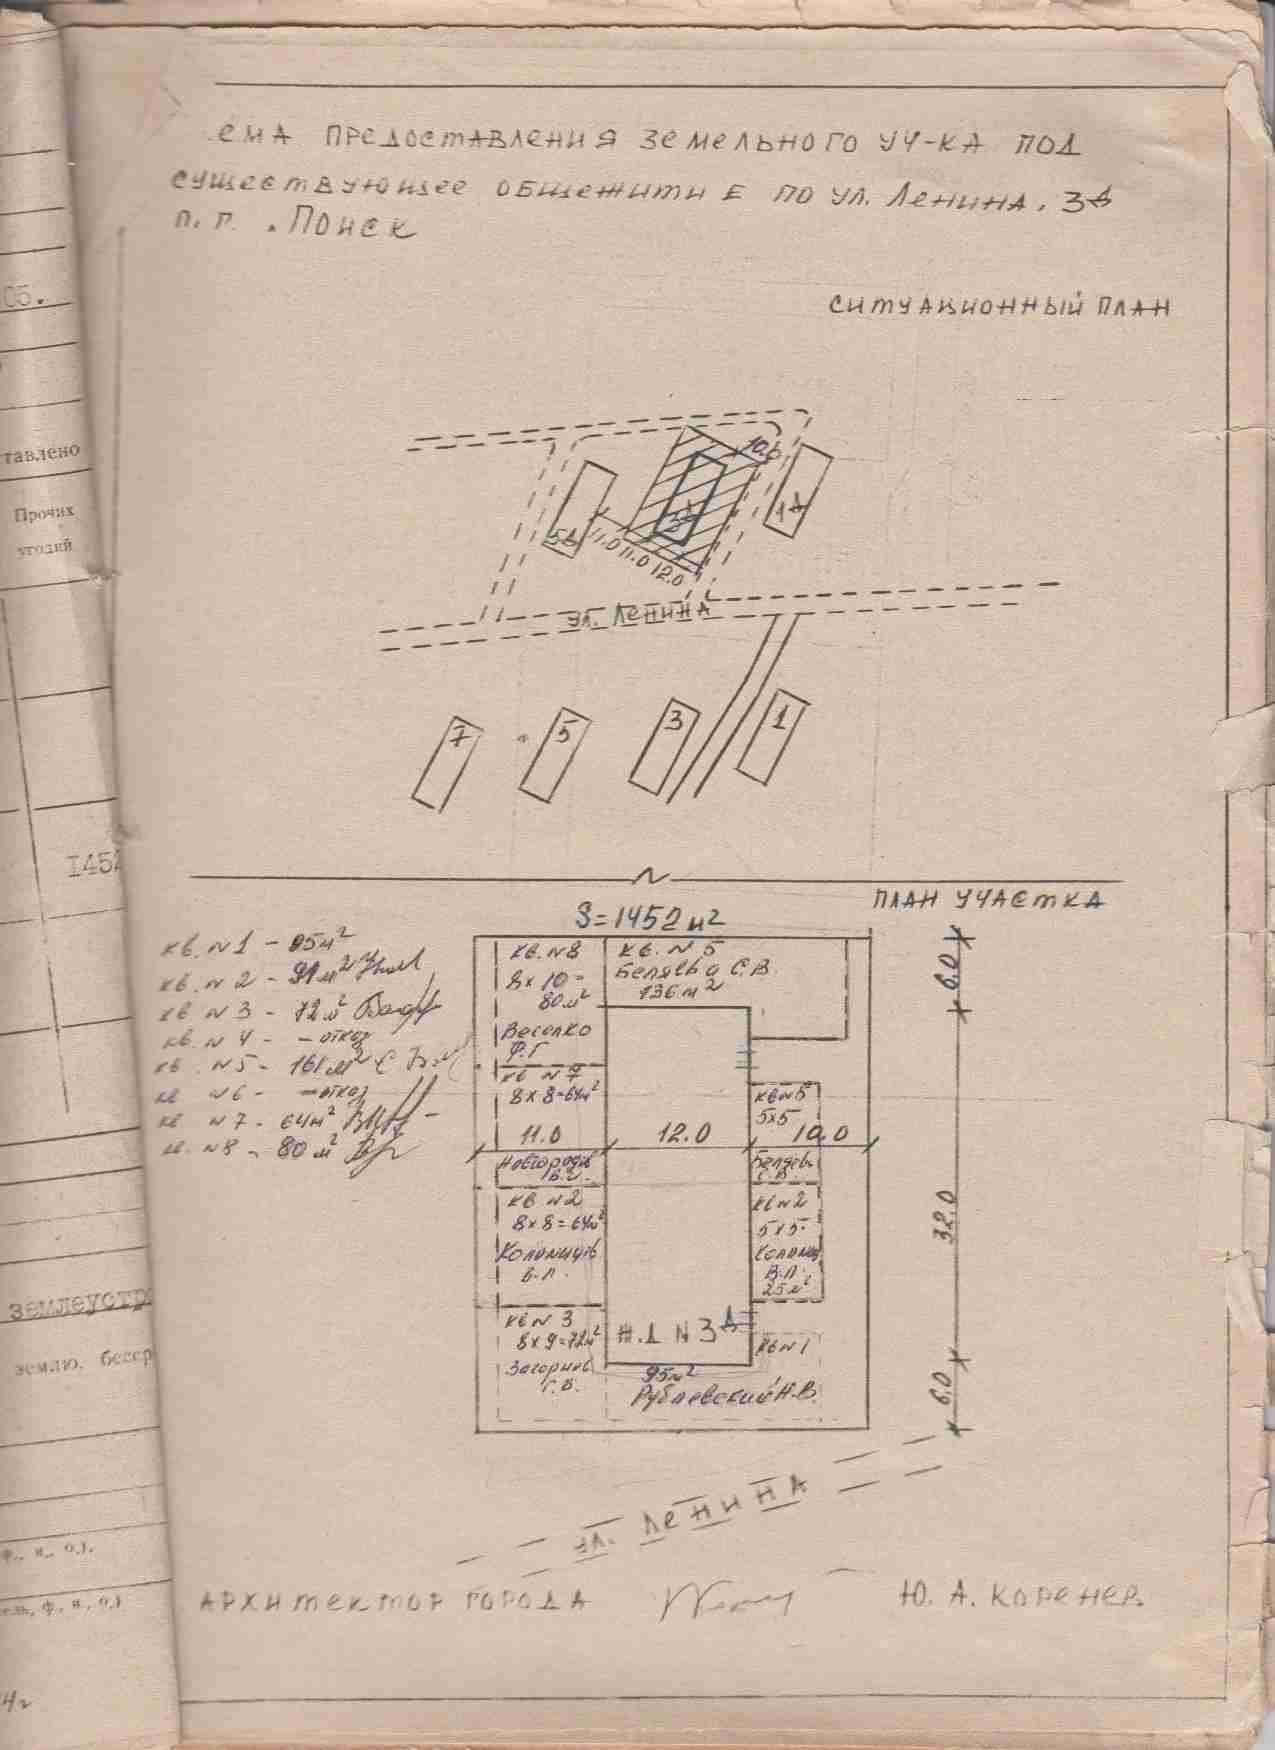 ЕМА ПРЕДОСТАВЛЕНИЯ ЗЕМЕЛЬНОГО УЧ-КА ПОД
СУЩЕСТВУЮЩЕЕ ОБЩЕЖИТИЕ ПО УЛ. ЛЕНИНА, 3
П. Г. ПОИСК
СИТУАЦИОННЫЙ ПЛАН
10.0
1А
5
11.0 11.0 12.0
УЛ. ЛЕНИНА
7
5
3
1
ПЛАН УЧАСТКА
S=1452м²
кв. №1 - 95м²
кв. №2 - 91м²
кв №3 - 72м²
кв. №4 - - отказ
кв. №5 - 161м²
кв №6 - - отказ
кв №7 - 64м²
кв. №8 - 80м²
кв. №8
8х10=
80м²
Веселко
Ф.Г
кв. №5
Беляева С.В.
136м²
кв №7
8х8=64м²
кв№5
5х5
11.0
12.0
10.0
В.Г.
Беляев
С.В.
кв №2
8х8=64м²
В.П.
кв№2
5х5
В.П.
25м²
кв№3
8х9=72м²
Г.В.
Ж.Д №3Д
кв№1
95м²
Рублевский Н.В.
6.0
32.0
6.0
УЛ. ЛЕНИНА
АРХИТЕКТОР ГОРОДА
Ю. А. КОРЕНЕВ
05.
тавлено
Прочих
угодий
I452
землеустр
землю, бесср
ф., и., о.).
ель, ф., и., о.)
4г